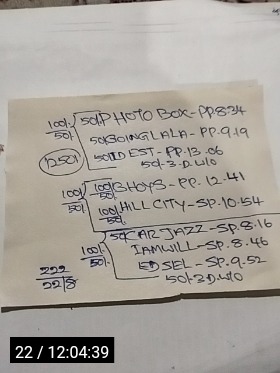 100/. 50/. PHOTO BOX - PP.8.34
50/. 50/. GOING LALA - PP.9.19
1250/. 50/. ID EST - PP.13.06
50/- 3.D.W/O
100/. 100/. BHOYS - PP.12.41
50/. 100/. HILL CITY - SP.10.54
50/. CAR JAZZ - SP.8.16
100/. IAMWILL - SP.8.46
50/. EDSEL - SP.9.52
222 50/- 3D.W/O
22/8
22 / 12:04:39